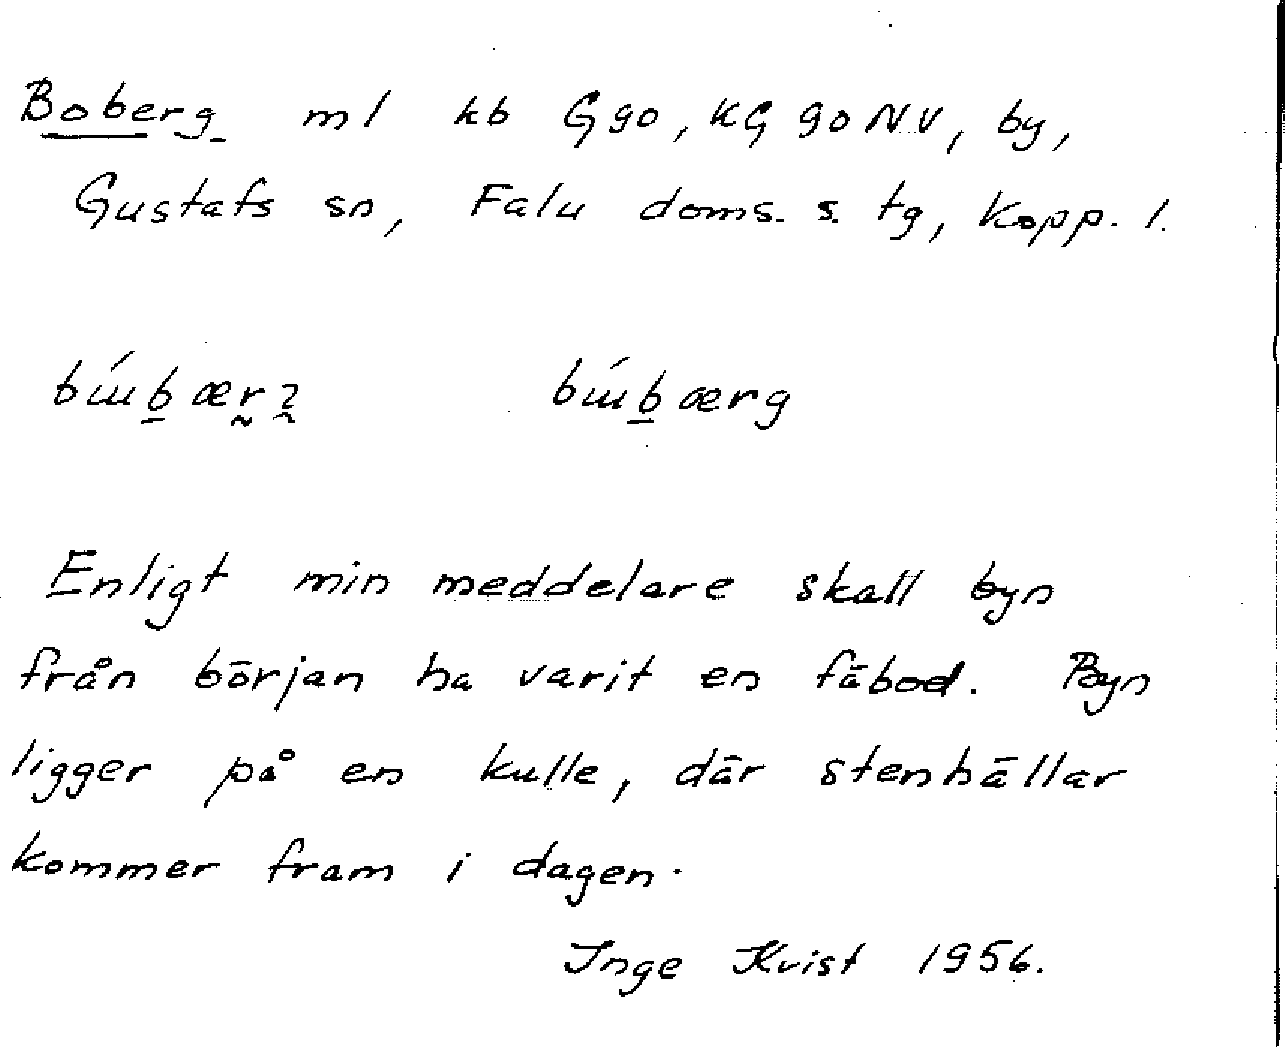 Boberg ml kb G 90, KG 90 NV, by,
Gustafs sn, Falu doms. s. tg, Kopp. l.
Enligt min meddelare skall byn
från början ha varit en fäbod. Byn
ligger på en kulle, där stenhällar
kommer fram i dagen.
Inge Kvist 1956.